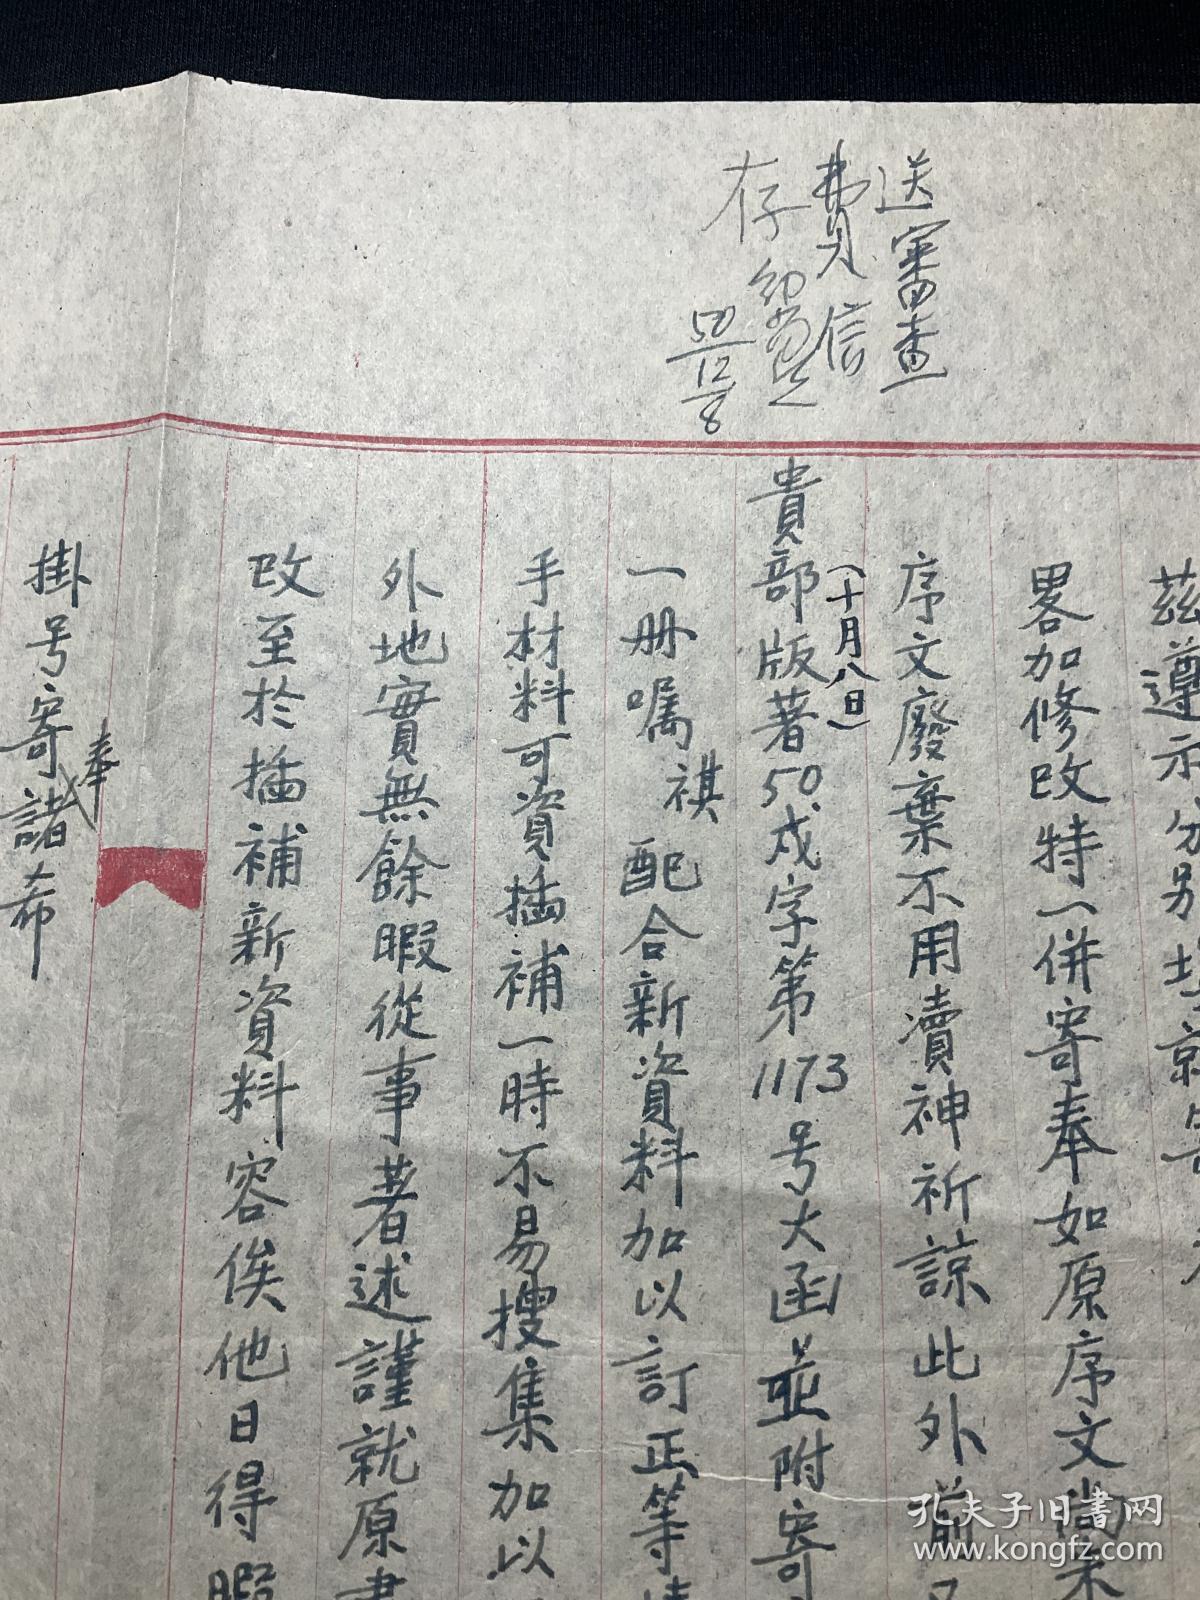 送審查
費 信
存
50/12/8
茲遵示分別
畧加修改特一併寄奉如原序文尚未
序文廢棄不用瀆神祈諒此外前
貴部版著50戍字第1173号大函並附寄
(十月八日)
一册嘱祺配合新資料加以訂正等
手材料可資插補一時不易搜集加以
外地實無餘暇從事著述謹就原書
改至於插補新資料容俟他日得暇
掛号寄諸希
奉
孔夫子旧書网
www.kongfz.com